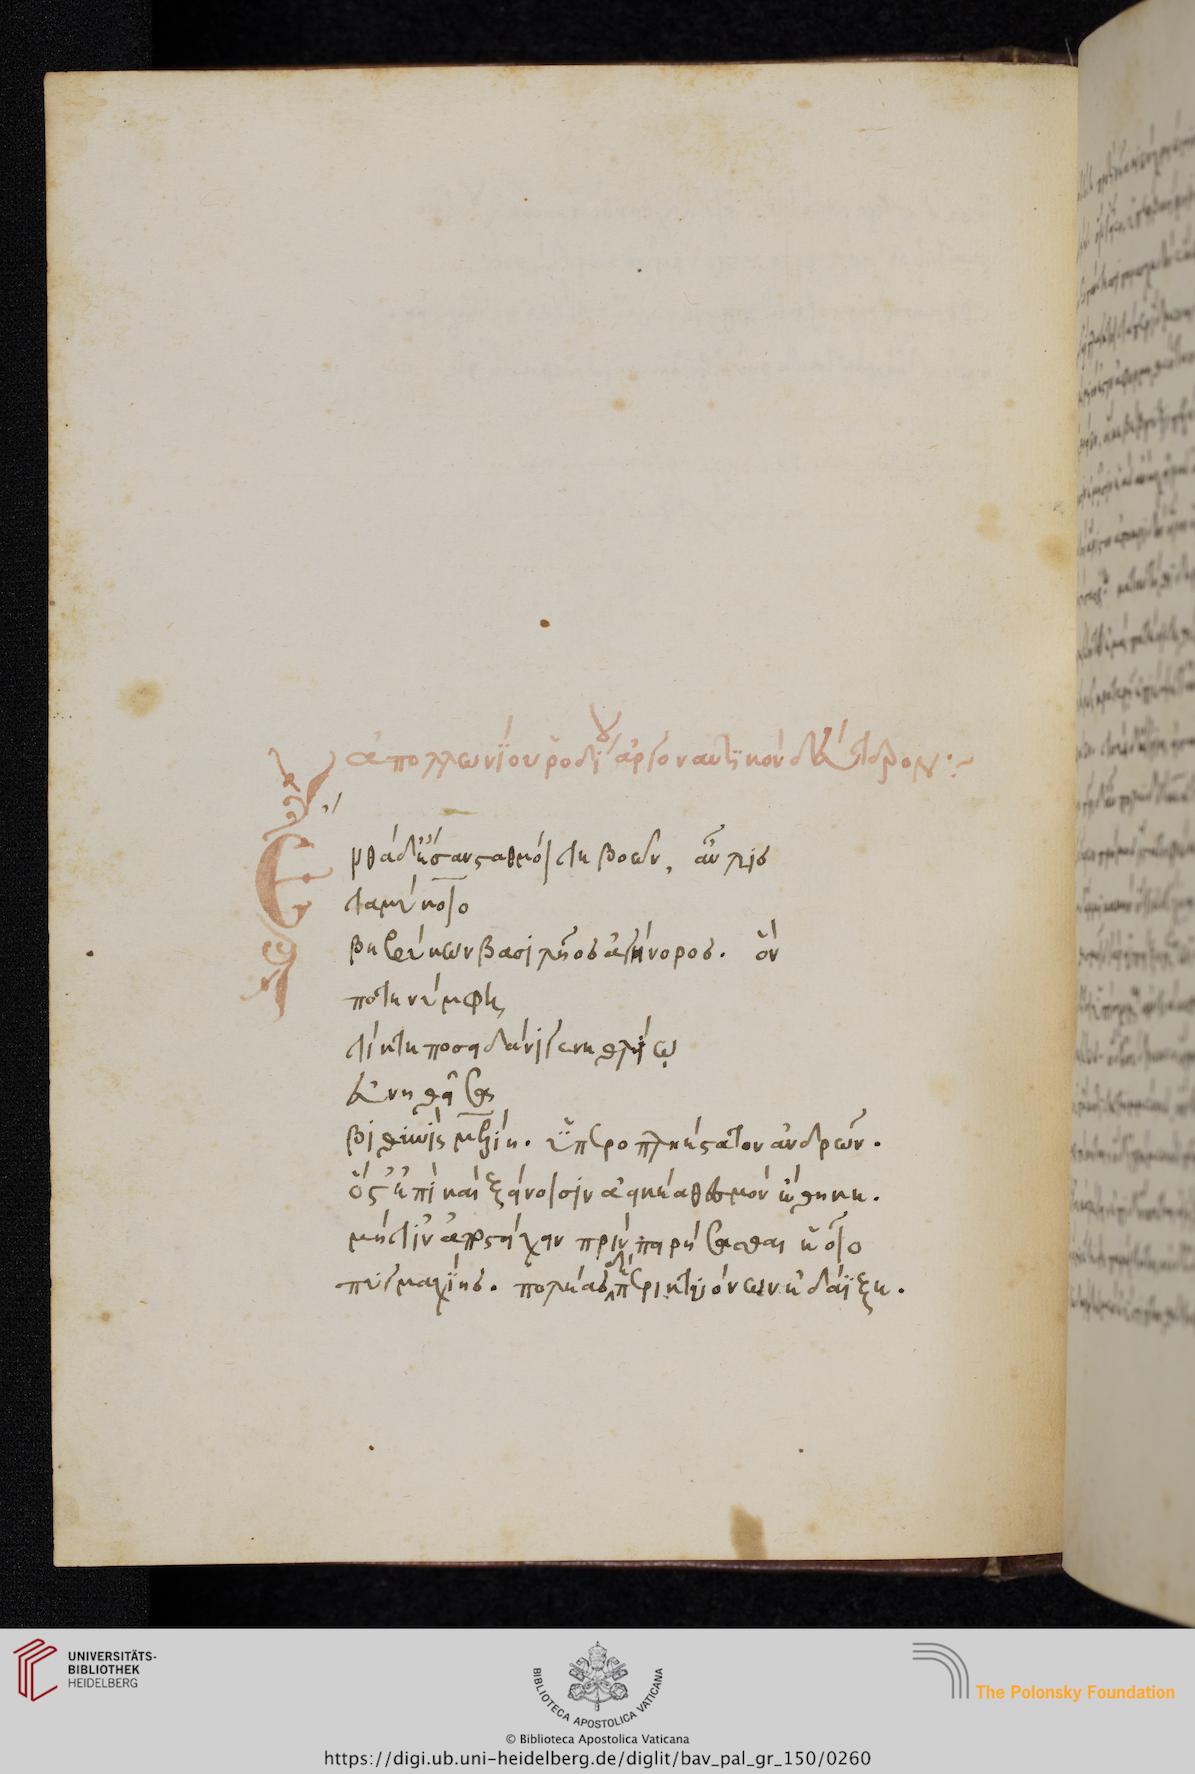 ἀπολλωνίου ῥοδίου ἀργοναυτικὸν δεύτερον:~
Ἔνθα δ' ἔσαν σταθμοί τε βοῶν, αὖλίς
τ' ἀμύκοιο
βεβρύκων βασιλῆος ἀγήνορος. ὅν
ποτε νύμφη
τίκτε ποσειδάνι γενεθλίῳ
εὐνηθεῖσα
βιθυνὶς μελίη. ὑπεροπληέστατον ἀνδρῶν.
ὅς τ' ἐπὶ καὶ ξείνοισιν ἀεικέα θεσμὸν ἔθηκε.
μήτιν' ἀποστείχειν πρὶν πειρήσασθαι ἑοῖο
πυγμαχίης. πολέας δὲ περικτιόνων ἐδάϊξε.
UNIVERSITÄTS-
BIBLIOTHEK
HEIDELBERG
BIBLIOTECA APOSTOLICA VATICANA
The Polonsky Foundation
© Biblioteca Apostolica Vaticana
https://digi.ub.uni-heidelberg.de/diglit/bav_pal_gr_150/0260